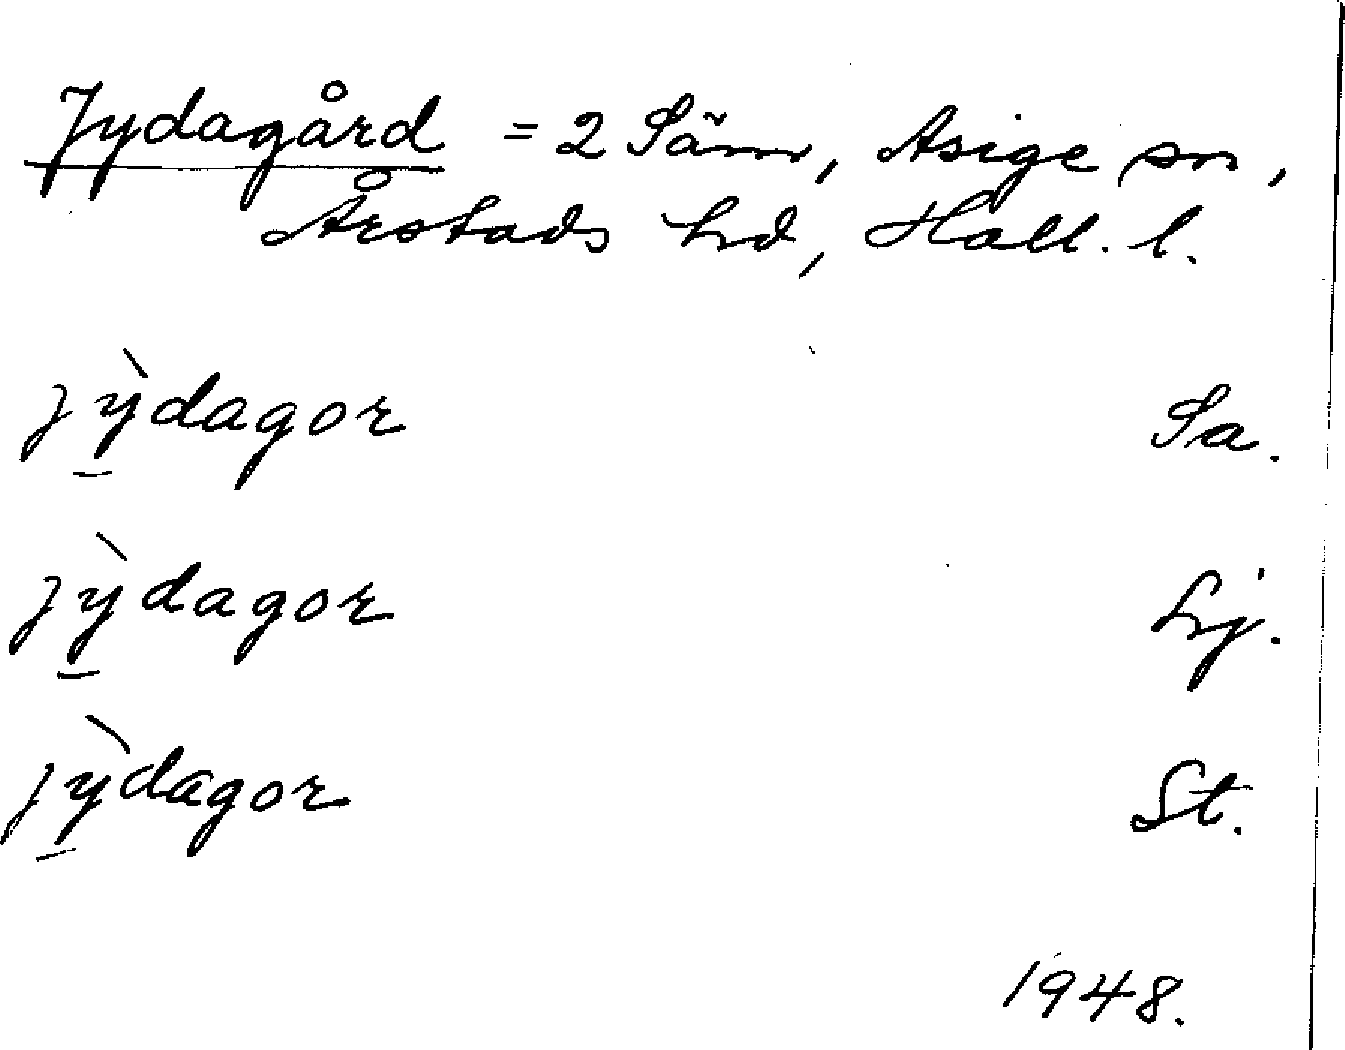 Jydagård = 2 Särm, Asige sn,
Årstads hd, Hall. l.
jỳ̱dagor Sa.
jỳ̱dagor Hj.
jỳ̱dagor St.
1948.